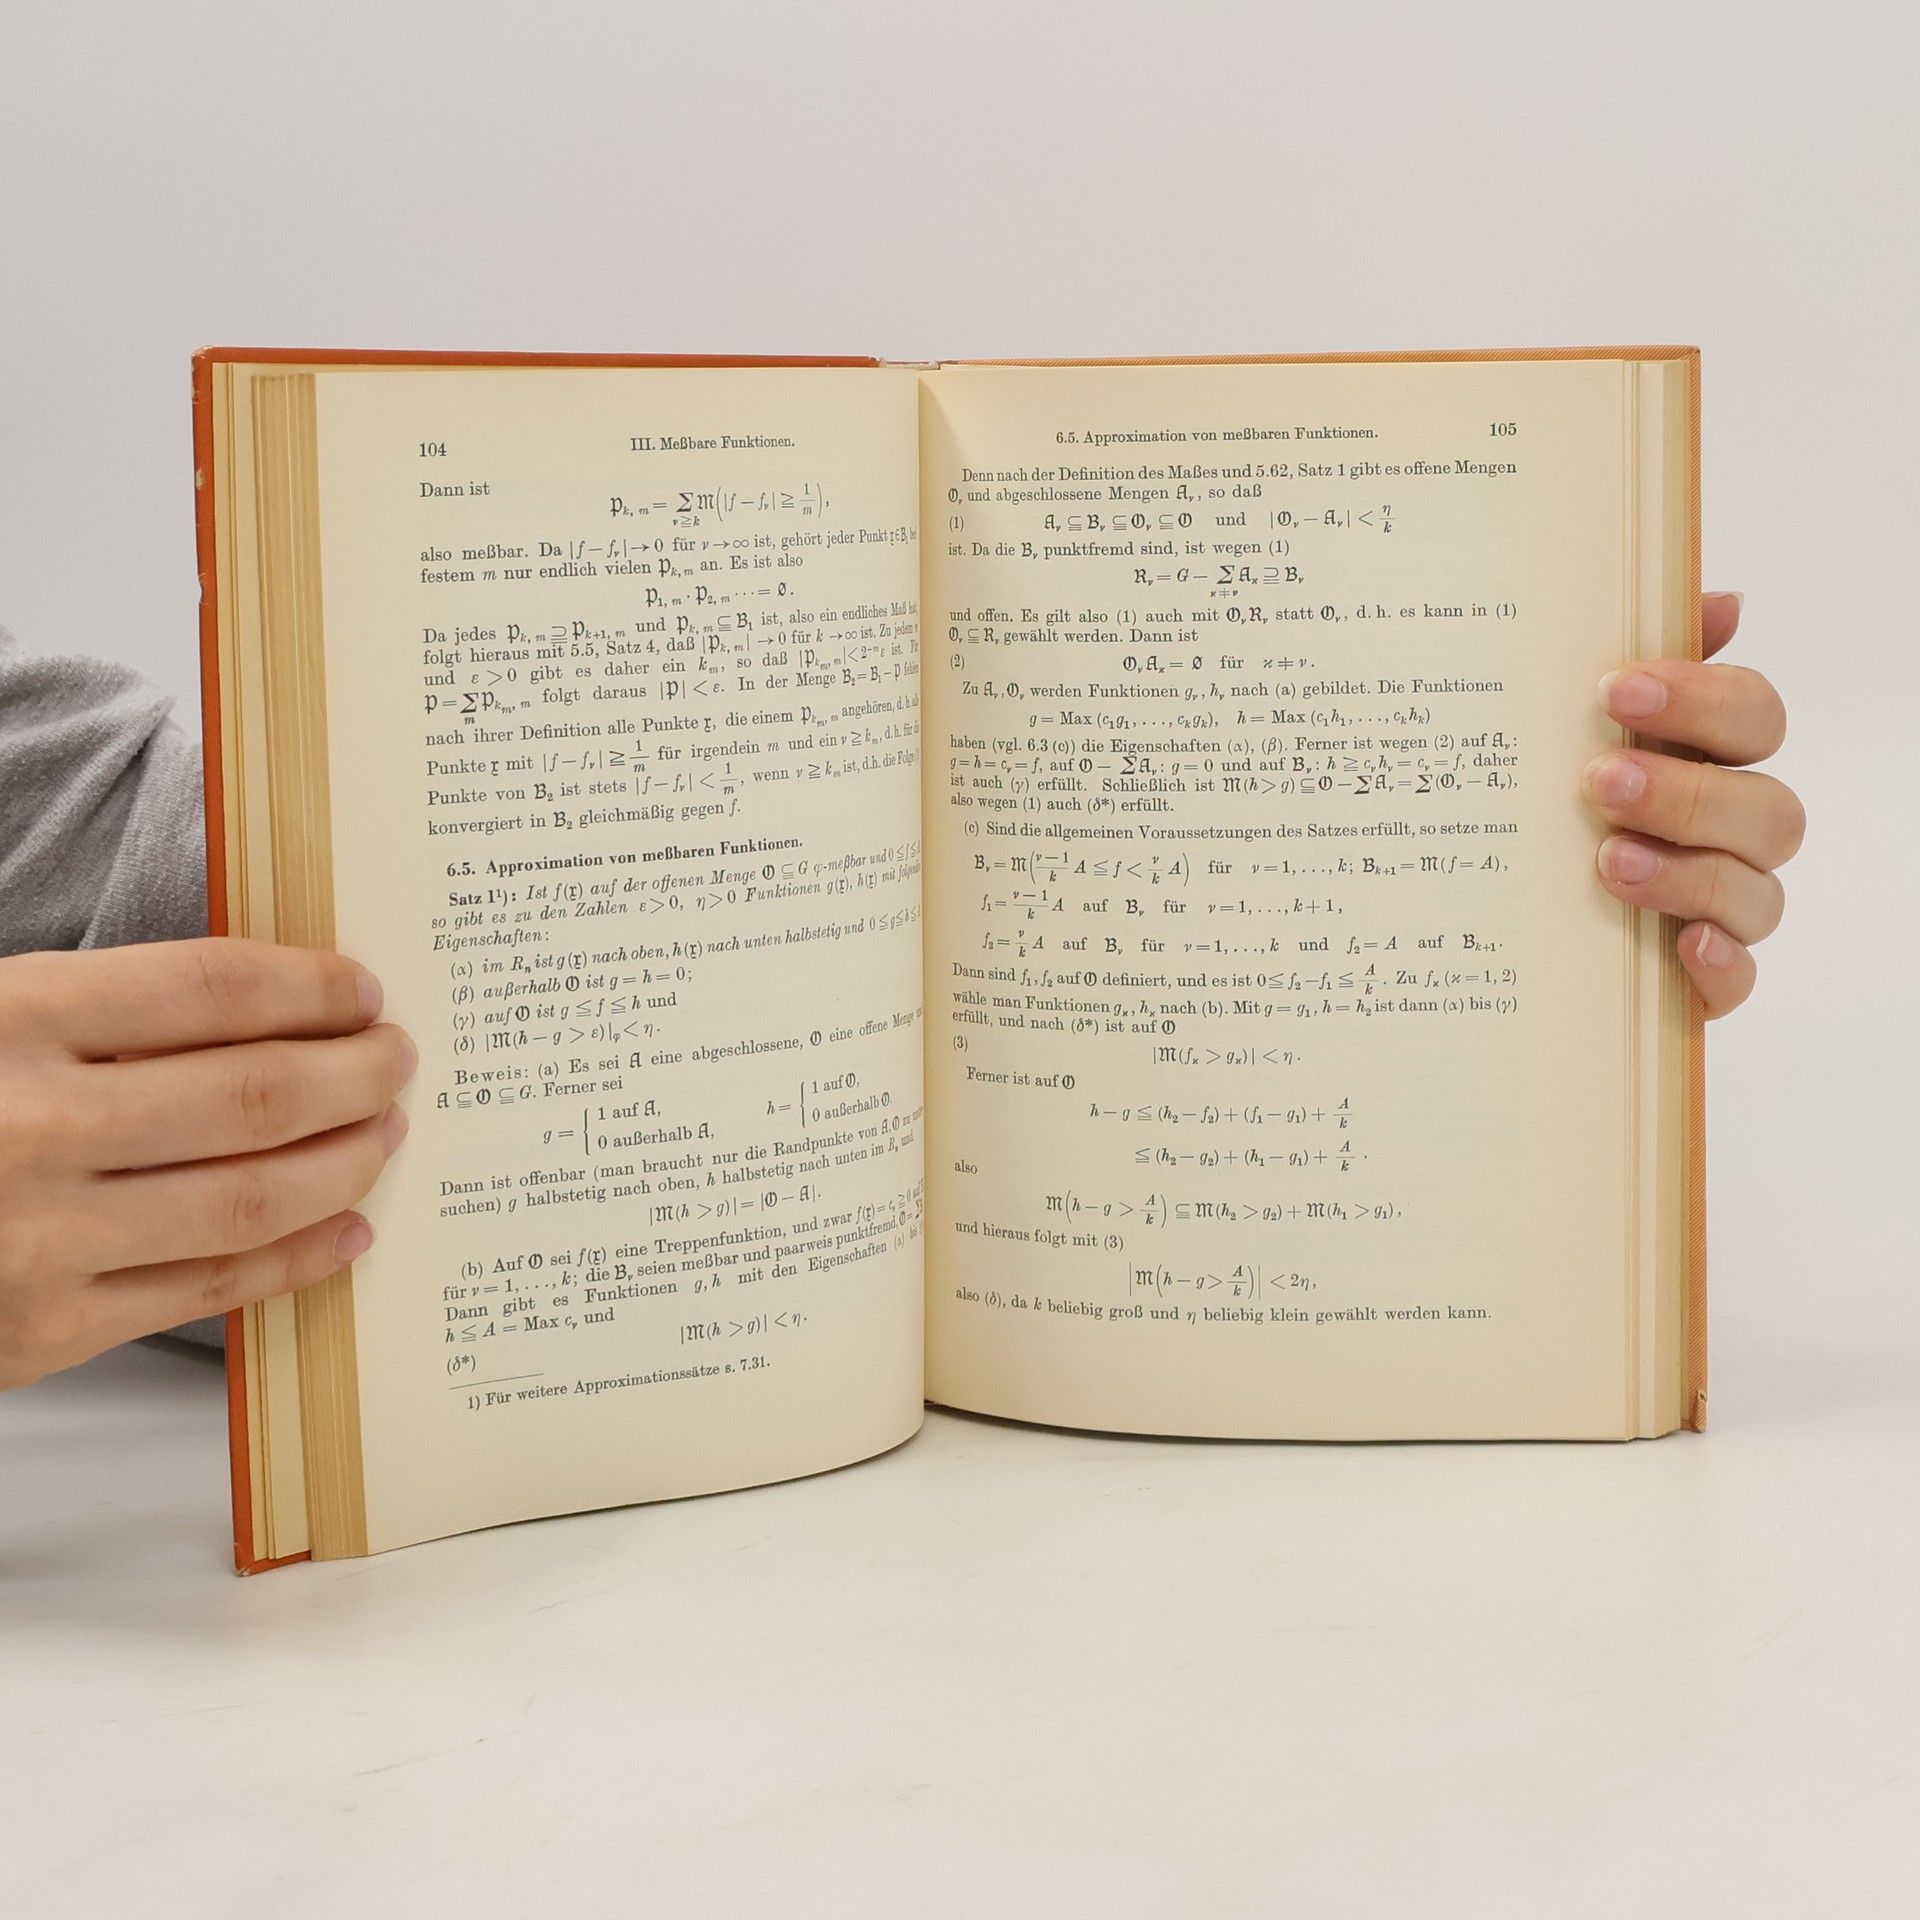 104 III. Meßbare Funktionen.
Dann ist
𝔓ₖ, ₘ = ∑ 𝔐(|f − fᵥ| ≧ 1/m),
ν≧k
also meßbar. Da |f − fᵥ| → 0 für ν → ∞ ist, gehört jeder Punkt 𝔵 ∈ 𝔅₁ bei
festem m nur endlich vielen 𝔓ₖ,ₘ an. Es ist also
𝔓₁, ₘ · 𝔓₂, ₘ ··· = ∅.
Da jedes 𝔓ₖ, ₘ ⊇ 𝔓ₖ₊₁, ₘ und 𝔓ₖ, ₘ ⊆ 𝔅₁ ist, also ein endliches Maß hat,
folgt hieraus mit 5.5, Satz 4, daß |𝔓ₖ, ₘ| → 0 für k → ∞ ist. Zu jedem
und ε > 0 gibt es daher ein kₘ, so daß |𝔓_{kₘ, m}| < 2⁻ᵐ ε ist. Für
𝔓 = ∑ 𝔓_{kₘ, m} folgt daraus |𝔓| < ε. In der Menge 𝔅₂ = 𝔅₁ − 𝔓 fehlen
m
nach ihrer Definition alle Punkte 𝔵, die einem 𝔓_{kₘ, m} angehören, d. h. alle
Punkte 𝔵 mit |f − fᵥ| ≧ 1/m für irgendein m und ein ν ≧ kₘ, d.h. für die
Punkte von 𝔅₂ ist stets |f − fᵥ| < 1/m, wenn ν ≧ kₘ ist, d.h. die Folge
konvergiert in 𝔅₂ gleichmäßig gegen f.
6.5. Approximation von meßbaren Funktionen.
Satz 1¹): Ist f(𝔵) auf der offenen Menge 𝔒 ⊆ G φ-meßbar und 0 ≦ f ≦
so gibt es zu den Zahlen ε > 0, η > 0 Funktionen g(𝔵), h(𝔵) mit folgenden
Eigenschaften:
(α) im Rₙ ist g(𝔵) nach oben, h(𝔵) nach unten halbstetig und 0 ≦ g ≦ h ≦
(β) außerhalb 𝔒 ist g = h = 0;
(γ) auf 𝔒 ist g ≦ f ≦ h und
(δ) |𝔐(h − g > ε)|ᵩ < η.
Beweis: (a) Es sei 𝔄 eine abgeschlossene, 𝔒 eine offene Menge und
𝔄 ⊆ 𝔒 ⊆ G. Ferner sei
g = { 1 auf 𝔄, 0 außerhalb 𝔄, h = { 1 auf 𝔒, 0 außerhalb 𝔒.
Dann ist offenbar (man braucht nur die Randpunkte von 𝔄, 𝔒 zu
suchen) g halbstetig nach oben, h halbstetig nach unten im Rₙ und
|𝔐(h > g)| = |𝔒 − 𝔄|.
(b) Auf 𝔒 sei f(𝔵) eine Treppenfunktion, und zwar f(𝔵) = cᵥ ≧ 0
für ν = 1, . . . , k; die 𝔅ᵥ seien meßbar und paarweis punktfremd, 𝔒 = ∑
Dann gibt es Funktionen g, h mit den Eigenschaften (α) bis
h ≦ A = Max cᵥ und
(δ*) |𝔐(h > g)| < η.
1) Für weitere Approximationssätze s. 7.31.
6.5. Approximation von meßbaren Funktionen. 105
Denn nach der Definition des Maßes und 5.62, Satz 1 gibt es offene Mengen
𝔒ᵥ und abgeschlossene Mengen 𝔄ᵥ, so daß
(1) 𝔄ᵥ ⊆ 𝔅ᵥ ⊆ 𝔒ᵥ ⊆ 𝔒 und |𝔒ᵥ − 𝔄ᵥ| < η/k
ist. Da die 𝔅ᵥ punktfremd sind, ist wegen (1)
ℜᵥ = G − ∑ 𝔄ϰ ⊇ 𝔅ᵥ
ϰ ≠ ν
und offen. Es gilt also (1) auch mit 𝔒ᵥℜᵥ statt 𝔒ᵥ, d. h. es kann in (1)
𝔒ᵥ ⊆ ℜᵥ gewählt werden. Dann ist
(2) 𝔒ᵥ𝔄ϰ = ∅ für ϰ ≠ ν.
Zu 𝔄ᵥ, 𝔒ᵥ werden Funktionen gᵥ, hᵥ nach (a) gebildet. Die Funktionen
g = Max (c₁g₁, . . . , cₖgₖ), h = Max (c₁h₁, . . . , cₖhₖ)
haben (vgl. 6.3 (c)) die Eigenschaften (α), (β). Ferner ist wegen (2) auf 𝔄ᵥ:
g = h = cᵥ = f, auf 𝔒 − ∑𝔄ᵥ: g = 0 und auf 𝔅ᵥ: h ≧ cᵥhᵥ = cᵥ = f, daher
ist auch (γ) erfüllt. Schließlich ist 𝔐(h > g) ⊆ 𝔒 − ∑𝔄ᵥ = ∑(𝔒ᵥ − 𝔄ᵥ),
also wegen (1) auch (δ*) erfüllt.
(c) Sind die allgemeinen Voraussetzungen des Satzes erfüllt, so setze man
𝔅ᵥ = 𝔐((ν−1)/k A ≦ f < ν/k A) für ν = 1, . . . , k; 𝔅ₖ₊₁ = 𝔐(f = A),
f₁ = (ν−1)/k A auf 𝔅ᵥ für ν = 1, . . . , k + 1,
f₂ = ν/k A auf 𝔅ᵥ für ν = 1, . . . , k und f₂ = A auf 𝔅ₖ₊₁.
Dann sind f₁, f₂ auf 𝔒 definiert, und es ist 0 ≦ f₂ − f₁ ≦ A/k. Zu fϰ (ϰ = 1, 2)
wähle man Funktionen gϰ, hϰ nach (b). Mit g = g₁, h = h₂ ist dann (α) bis (γ)
erfüllt, und nach (δ*) ist auf 𝔒
(3) |𝔐(fϰ > gϰ)| < η.
Ferner ist auf 𝔒
h − g ≦ (h₂ − f₂) + (f₁ − g₁) + A/k
≦ (h₂ − g₂) + (h₁ − g₁) + A/k .
also
𝔐(h − g > A/k) ⊆ 𝔐(h₂ > g₂) + 𝔐(h₁ > g₁),
und hieraus folgt mit (3)
|𝔐(h − g > A/k)| < 2η,
also (δ), da k beliebig groß und η beliebig klein gewählt werden kann.